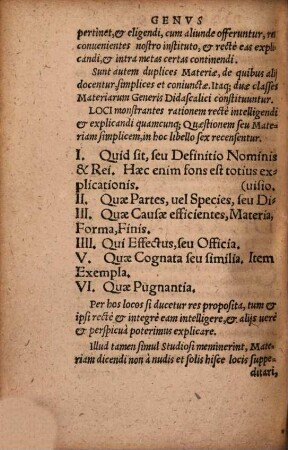 GENVS
pertinet,& eligendi, cum aliunde offeruntur, res
convenientes nostro instituto, & rectè eas expli
candi,& intra metas certas continendi.
Sunt autem duplices Materiæ, de quibus alij
docentur.simplices et coniunctæ. Itaq; duæ classes
Materiarum Generis Didascalici constituuntur.
LOCI monstrantes rationem rectè intelligendi
& explicandi quamcunq; Quæstionem seu Mate
riam simplicem, in hoc libello sex recensentur.
I. Quid sit, seu Definitio Nominis
& Rei. Hæc enim fons est totius ex
plicationis. (uisio.
II. Quæ Partes, uel Species, seu Di-
III. Quæ Causæ efficientes, Materia,
Forma, Finis.
IIII. Qui Effectus, seu Officia.
V. Quæ Cognata seu similia. Item
Exempla.
VI. Quæ Pugnantia.
Per hos locos si ducetur res proposita, tum &
ipsi rectè & integrè eam intelligere,& alijs uerè
& perspicuè poterimus explicare.
Illud tamen simul Studiosi meminerint, Mate
riam dicendi non à nudis et solis hisce locis suppe
ditari,